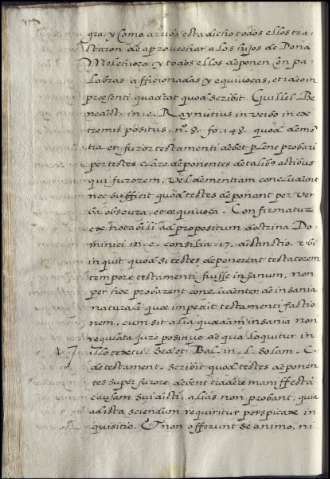 gra, y como arriba esta dicho todos ellos tra
taron de aprovechar a los hijos de Dona
y todos ellos deponen con pa
labras afficionadas y equivocas, et ideo in
præsenti quadrat quod scribit Guiliel. Be
nedict. in c. Raynutius in verbo in ex
tremis positus, n. 8. fo. 48. quod demen
tia et furor testamenti debet plene probari
per testes claro deponentes de talibus actibus
qui furorem, vel dementiam concludant
nec sufficit quod testes deponant per ver
ba obscura, et equivoca. Confirmatur
ex hoc ad propositum doctrina Do
minici consilia 17.
inquit quod si testes deponerent testatorem
tempore testamenti fuisse insanum, non
per hoc probarent concludenter de insania
naturali quæ impedit testamenti factio
nem, cum sit alia quædam insania non
regulata jure positivo de qua loquitur in
illo textu Beat. et Bal. in l. solam, C.
de testament. scribit quod testes deponen
tes super furore debent tradere manifestã
causam sui dicti, alias non probant, quia
ad ista sciendum requiritur perspicax in
quisitio. Et non offerunt de animo, ni